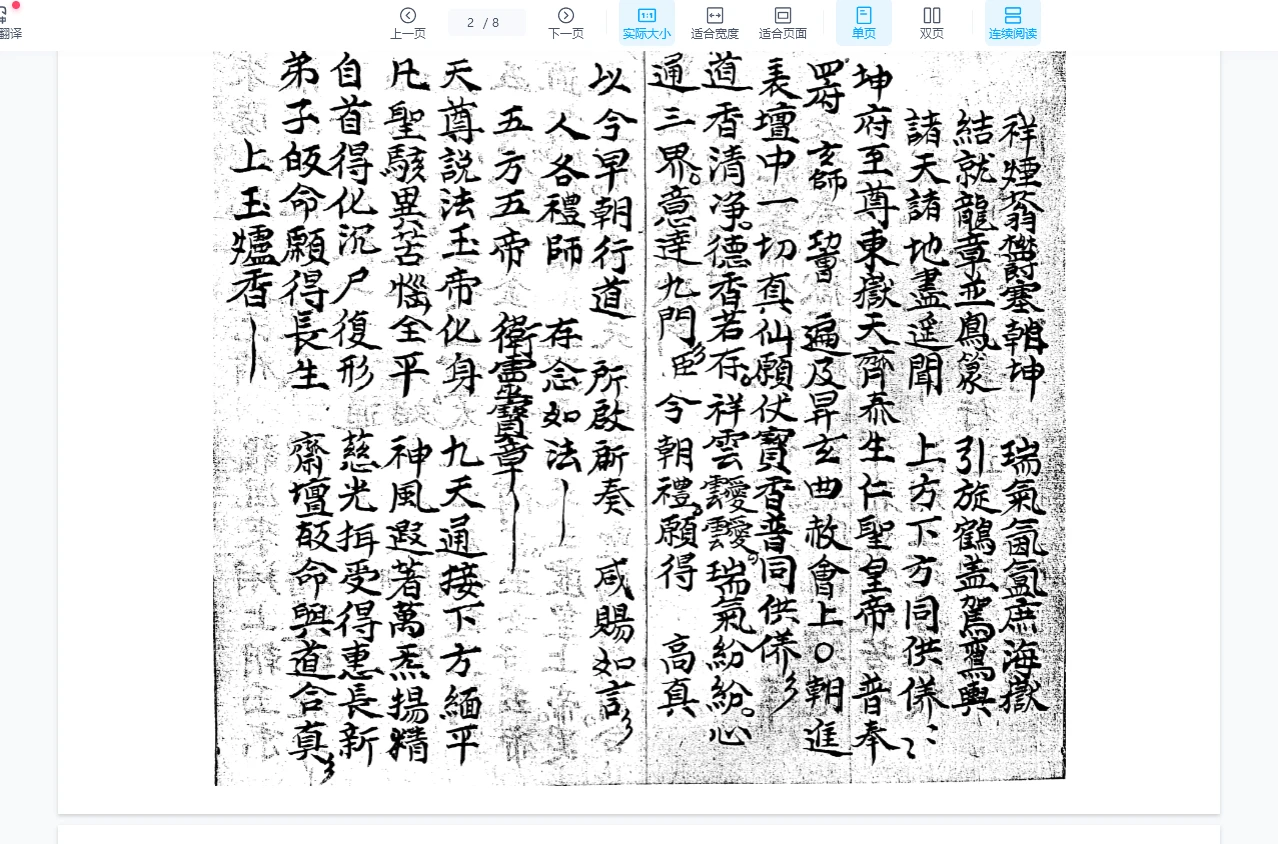 翻译
上一页
2 / 8
下一页
实际大小
适合宽度
适合页面
单页
双页
连续阅读
祥煙蓊欝塞朝坤 瑞氣氤氳庶海嶽
結就龍章並鳳篆 引旋鶴盖駕鸞輿
諸天諸地盡遥聞 上方下方同供養
坤府至尊東嶽天齊泰生仁聖皇帝 普奉
玄師 遍及昇玄 赦會上〇朝進
表壇中一切真仙願伏寶香普同供養
道香清净德香若存祥雲靉靉瑞氣紛紛心
通三界意達九門臣今朝禮願得 高真
以今早朝行道 所啟所奏 咸賜如言
人各禮師 存念如法
五方五帝 衛靈寶章
天尊説法玉帝化身 九天通接下方緬平
凡聖駭異苦惱全平 神風遐著萬炁揚精
自首得化沉尸復形 慈光拝受得惠長新
弟子皈命願得長生 齋壇皈命與道合真
上玉爐香